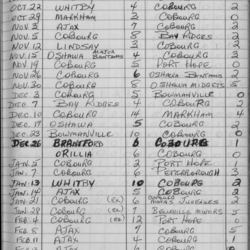 OCT 22 WHITBY 4 COBOURG 2
OCT 29 MARKHAM 3 COBOURG 2
NOV 3 AJAX 5 COBOURG 2
NOV 5 COBOURG 8 BAY RIDGES 2
NOV 12 LINDSAY COBOURG 2
NOV 15 OSHAWA MINOR BANTAMS COBOURG 2
NOV 19 COBOURG 5 PORT HOPE 1
NOV 26 COBOURG 6 OSHAWA BANTAMS 2
NOV 30 COBOURG 6 OSHAWA MIDGETS
DEC 3 COBOURG BOWMANVILLE 0
DEC 7 BAY RIDGES 3 COBOURG
DEC 10 COBOURG MARKHAM 4
DEC 17 OSHAWA 5 COBOURG 2
DEC 23 BOWMANVILLE COBOURG 0
DEC 26 BRANTFORD 6 COBOURG 1
ORILLIA 6 COBOURG 0
JAN. 5 COBOURG 2 PORT HOPE
JAN. 7 COBOURG 6 PETERBOROUGH 3
JAN 13 WHITBY 10 COBOURG 2
JAN 14 AJAX COBOURG 2
JAN 21 COBOURG (EX) 6 JUVENILES 2
JAN 28 COBOURG (EX) MINORS
FEB 4 COBOURG (EX) 12 PORT HOPE
FEB 8 AJAX 7 COBOURG 5
FEB 11 AJAX 7 COBOURG
COBOURG AJAX